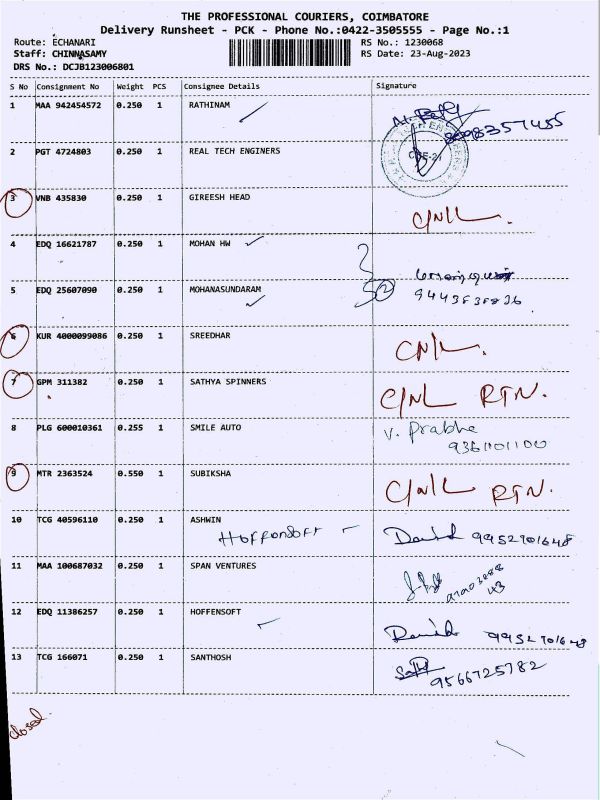 THE PROFESSIONAL COURIERS, COIMBATORE
Delivery Runsheet - PCK - Phone No.:0422-3505555 - Page No.:1
Route: ECHANARI RS No.: 1230068
Staff: CHINNASAMY RS Date: 23-Aug-2023
DRS No.: DCJB123006801
S No Consignment No Weight PCS Consignee Details Signature
1 MAA 942454572 0.250 1 RATHINAM
2 PGT 4724803 0.250 1 REAL TECH ENGINERS
3 VNB 435830 0.250 1 GIREESH HEAD C/N/L
4 EDQ 16621787 0.250 1 MOHAN HW
5 EDQ 25607090 0.250 1 MOHANASUNDARAM 2
6 KUR 4000099086 0.250 1 SREEDHAR C/N/L.
7 GPM 311382 0.250 1 SATHYA SPINNERS C/N/L RTN.
8 PLG 600010361 0.255 1 SMILE AUTO V. Prabha
9361101100
9 MTR 2363524 0.550 1 SUBIKSHA C/N/L RTN.
10 TCG 40596110 0.250 1 ASHWIN
Hoffensoft David 9952701648
11 MAA 100687032 0.250 1 SPAN VENTURES
12 EDQ 11386257 0.250 1 HOFFENSOFT
David 9952701648
13 TCG 166071 0.250 1 SANTHOSH
9566725782
closed